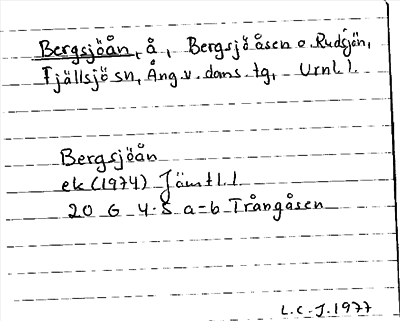 Bergsjöån, å, Bergsjöåsen o. Rudsjön,
Fjällsjö sn, Ång v. doms. tg, Urnl l
Bergsjöån
ek (1974) Jämtl. l.
20 G 4-5 a-b Trångåsen
L.C.J. 1977